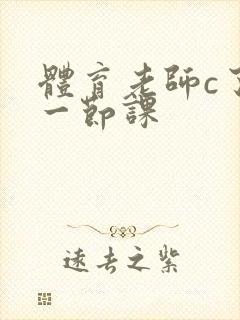 體育老師c了
一節課
遠去之紫